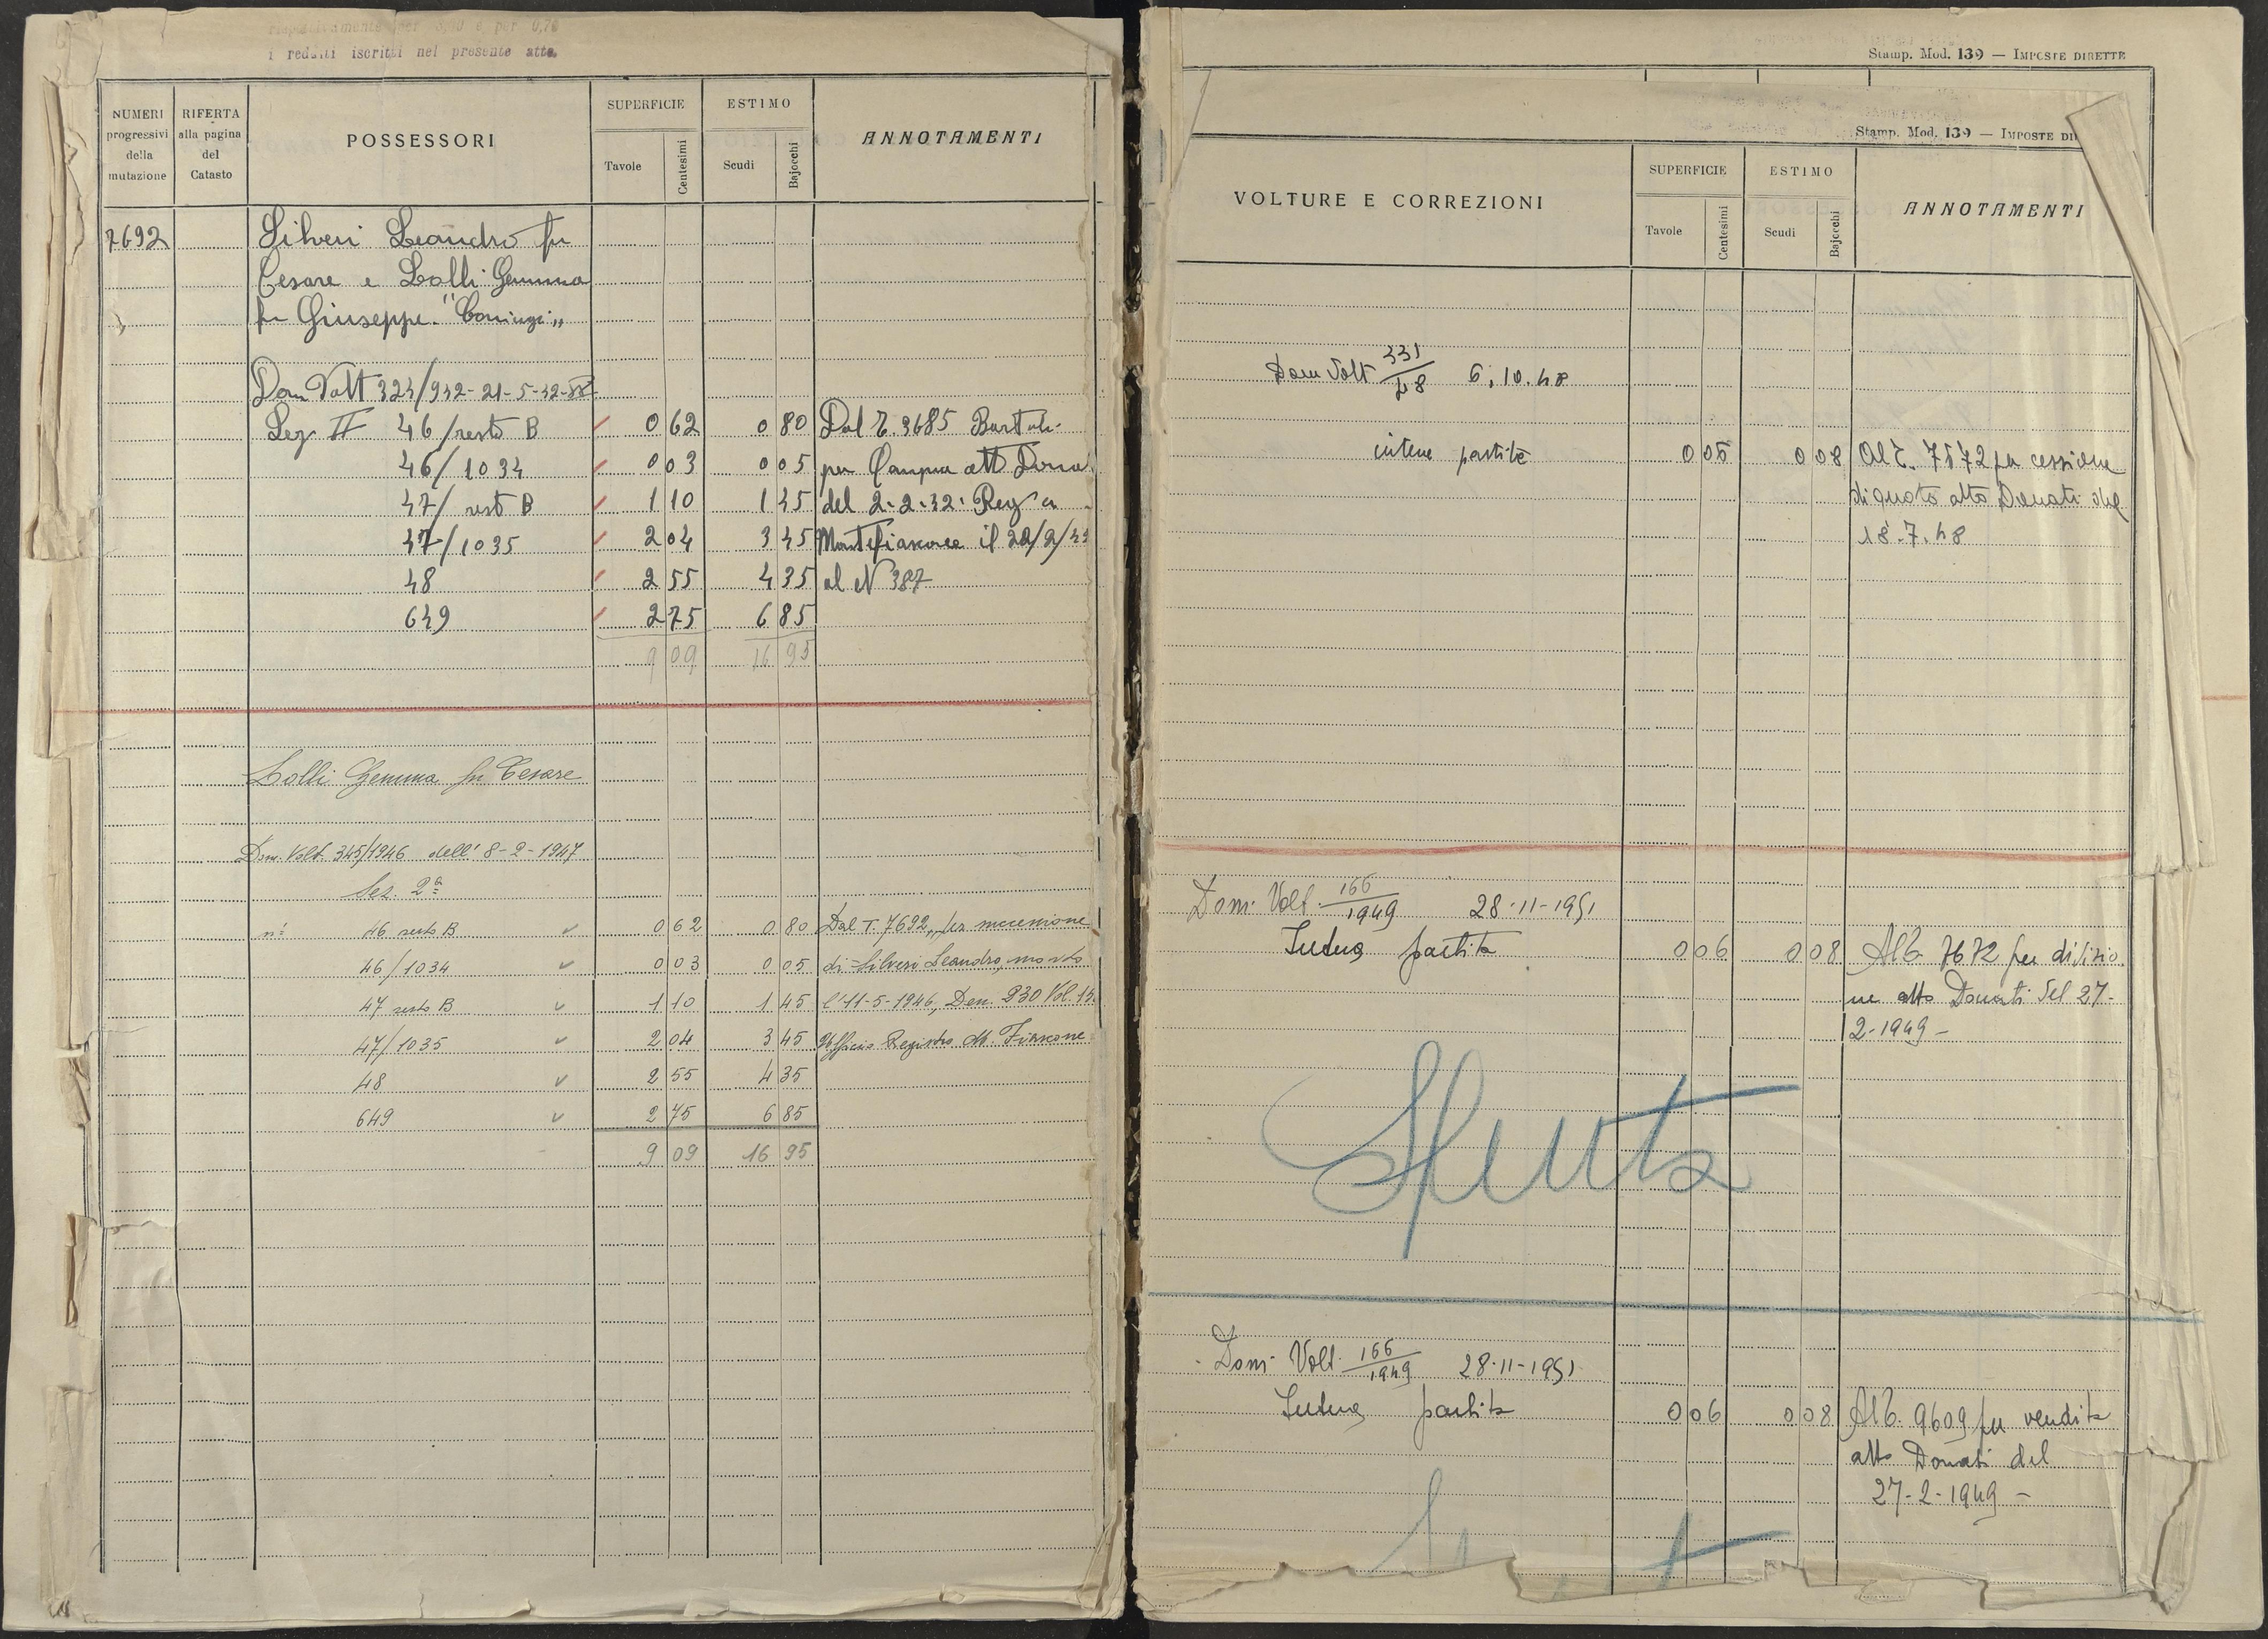 rispettivamente per 3,00 e per 0,70
i redditi iscritti nel presente atto.
NUMERI progressivi della mutazione
RIFERTA alla pagina del Catasto
POSSESSORI
SUPERFICIE
Tavole Centesimi
ESTIMO
Scudi Bajocchi
ANNOTAMENTI
7692 Silveri Leandro fu
Cesare e Lolli Gemma
fu Giuseppe. "Coniugi"
Dom Volt 323/932-21-5-32-
Sez II 46/resto B 0 62 0 80 Dal T. 3685
46/1034 0 03 0 05 per Compra att
47/ resto B 1 10 1 45 del 2-2-32. Reg a
47/1035 2 04 3 45 Montefiascone il 20/2/32
48 2 55 4 35 al N 387
649 2 75 6 85
9 09 16 95
Lolli Gemma fu Cesare
Dom. Volt. 345/1946 dell' 8-2-1947
Sez. 2ª
nⁱ 46 resto B 0 62 0 80 Dal T. 7692, per successione
46/1034 0 03 0 05 di Silveri Leandro, morto
47 resto B 1 10 1 45 l'11-5-1946, Den. 230 Vol. 13.
47/1035 2 04 3 45 Ufficio Registro M. Fiascone
48 2 55 4 35
649 2 75 6 85
9 09 16 95
Stamp. Mod. 139 — IMPOSTE DIRETTE
Stamp. Mod. 139 — IMPOSTE DI
VOLTURE E CORREZIONI
SUPERFICIE
Tavole Centesimi
ESTIMO
Scudi Bajocchi
ANNOTAMENTI
Dom Volt 331/48 6.10.48
intera partita 0 06 0 08 Al T. 7572 per cessione
di quota atto Donati del
18.7.48
Dom. Volt. 166/1949 28-11-1951
Intera partita 0 06 0 08 Al T. 7672 per divisio
ne atto Donati del 27-
2-1949 -
Spenta
Dom. Volt. 166/1949 28-11-1951
Intera partita 0 06 0 08 Al T. 9609 per vendita
atto Donati del
27-2-1949 -